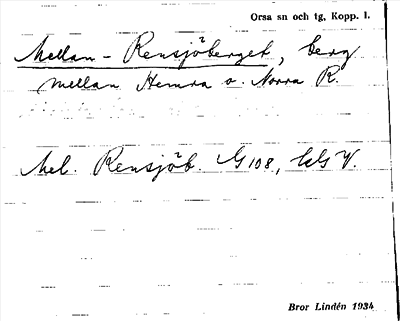 Orsa sn och tg, Kopp. l.
Mellan-Rensjöberget, berg
mellan Hemra o. Norra R.
Mel. Rensjöb. G 108, kG V.
Bror Lindén 1934